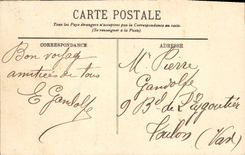 CARTE POSTALE
Tous les Pays étrangers n'acceptent pas la Correspondance au recto.
(Se renseigner à la Poste)
CORRESPONDANCE
Bon voyage
amitiées de tous
E Gandolfe
ADRESSE
Mr Pierre
Gandolfe
9 Bd de
Toulon (Var)